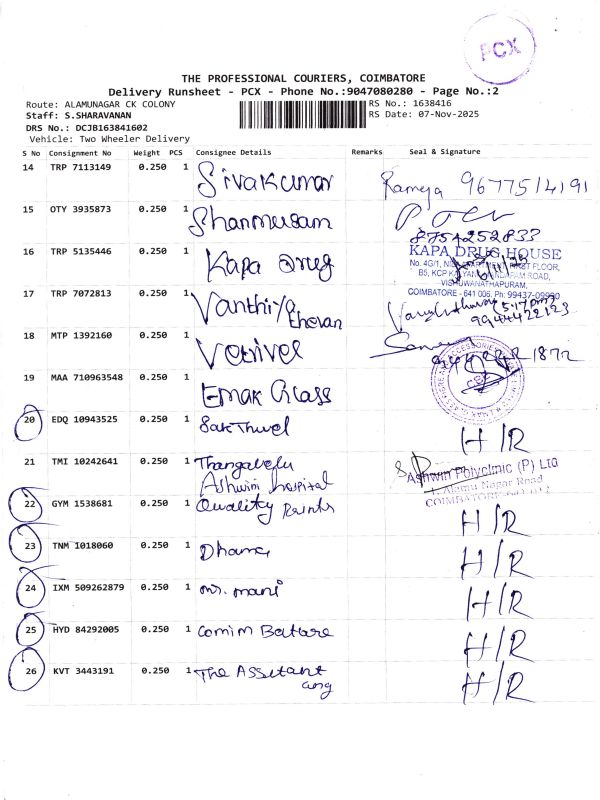 PCX
THE PROFESSIONAL COURIERS, COIMBATORE
Delivery Runsheet - PCX - Phone No.:9047080280 - Page No.:2
Route: ALAMUNAGAR CK COLONY
RS No.: 1638416
Staff: S.SHARAVANAN
RS Date: 07-Nov-2025
DRS No.: DCJB163841602
Vehicle: Two Wheeler Delivery
S No Consignment No Weight PCS Consignee Details Remarks Seal & Signature
14 TRP 7113149 0.250 1 Sivakumar Rameja 9677514191
15 OTY 3935873 0.250 1 Shanmugam
8754252833
16 TRP 5135446 0.250 1 Kapa Drug KAPA DRUG HOUSE
No. 4G/1, FIRST FLOOR,
B5, ROAD,
VISHUWANATHAPURAM,
COIMBATORE - 641 006. Ph: 99437-09990
17 TRP 7072813 0.250 1 Vanthiya thevan 5:17pm
9944422123
18 MTP 1392160 0.250 1 Vetrivel
19 MAA 710963548 0.250 1 Emak Glass
20 EDQ 10943525 0.250 1 Sakthivel H/R
21 TMI 10242641 0.250 1 Thangavelu
Ashwini hospital
Ashwin Polyclinic (P) Ltd
Alamu Nagar Road
COIMBATORE
22 GYM 1538681 0.250 1 Quality Paints H/R
23 TNM 1018060 0.250 1 Dhana H/R
24 IXM 509262879 0.250 1 mr. mani H/R
25 HYD 84292005 0.250 1 Comim Batare H/R
26 KVT 3443191 0.250 1 The Assitant H/R
eng